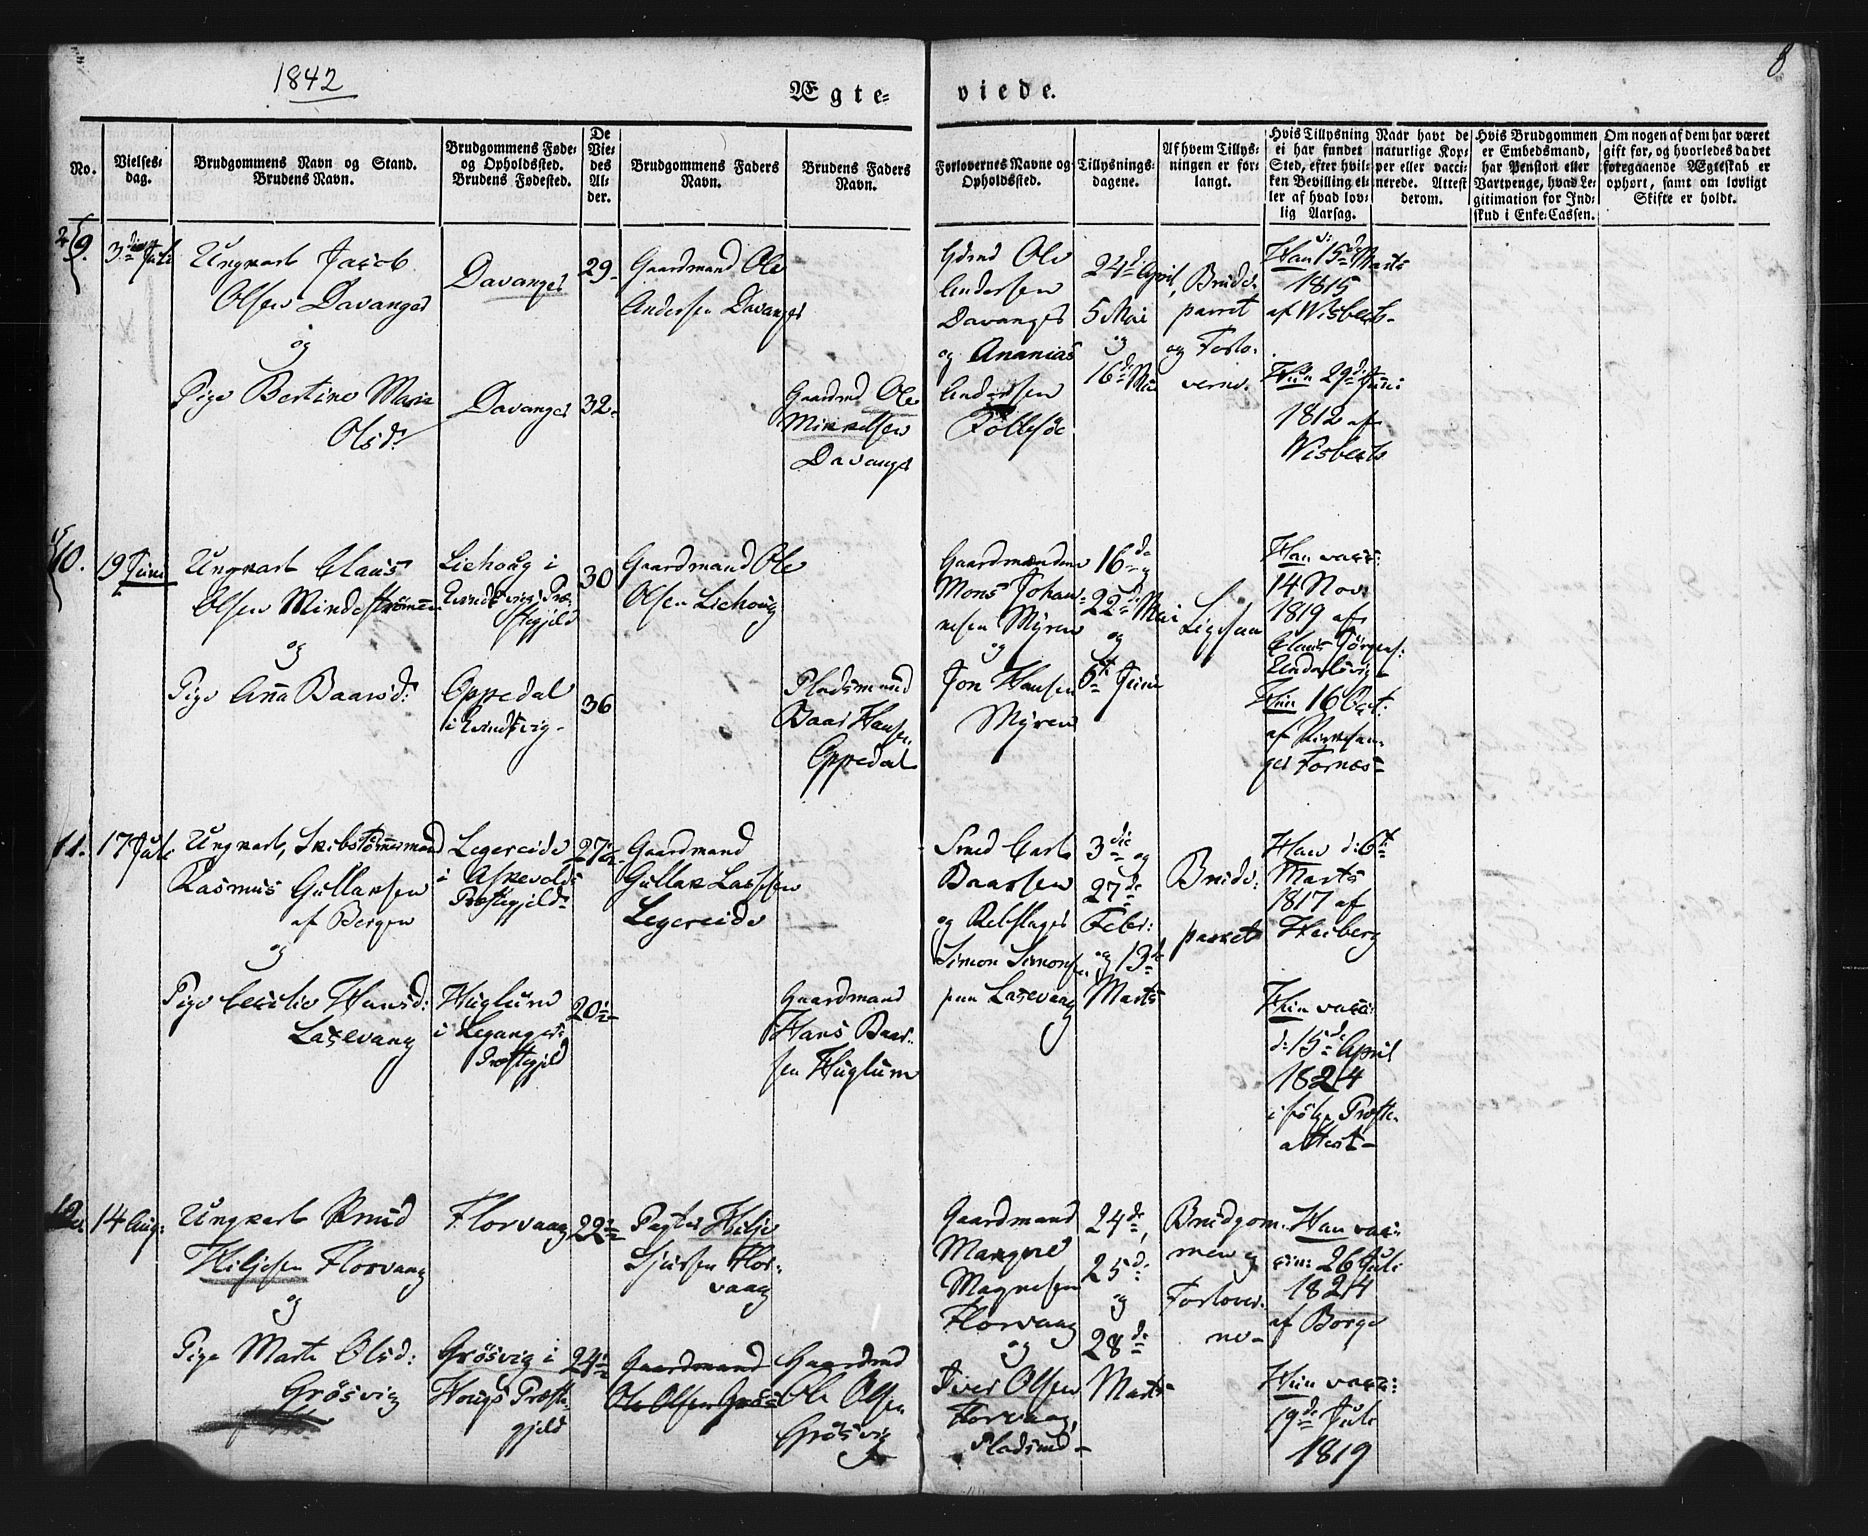 1842
8
Ægte=
viede.
No.
Vielses=
dag.
Brudgommens Navn og Stand.
Brudens Navn.
Brudgommens Føde=
og Opholdssted.
Brudens Fødested.
De
Vie=
des
Al=
der.
Brudgommens Faders
Navn.
Brudens Faders
Navn.
Forlovernes Navne og
Opholdssted.
Tillysnings=
dagene.
Af hvem Tillys=
ningen er for=
langt.
Hvis Tillysning
ei har fundet
Sted, efter hvil=
ken Bevilling el=
ler af hvad lov=
lig Aarsag.
Naar havt de
naturlige Kop=
per eller vacci=
nerede. Attest
derom.
Hvis Brudgommen
er Embedsmand,
har Pension eller
Vartpenge, hvad Le=
gitimation for Ind=
skud i Enke=Cassen.
Om nogen af dem har været
gift før, og hvorledes da det
foregaaende Ægteskab er
ophørt, samt om lovligt
Skifte er holdt.
9.
3die Juli
Ungkarl Jacob
Olsen Davanger
og
Pige Bertine Maria
Olsd:
Davanger
Davanger
29-
32-
Gaardmand Ole
Andersen Davanger
Gaardmd Ole
Mikkelsen
Davanger
Gdmd Ole
Andersen
Davanger
og Ananias
Andersen
24de April,
5 Mai
og
16de Mai
Brude-
parret
og Forlo-
verne.
Han 15de Marts
1815
af Wisberts-
Hun 29de Juni
1812 af
Wisberts
10.
19 Juni
Ungkarl Claus
Olsen Mindestrømmen
og
Pige Anna Baarsd:
Liehoug i
Evindvigs Præ-
stegjeld
Oppedal
i Evindvig-
30
36
Gaardmand Ole
Olsen Liehoug
Pladsmand
Baar Hansen
Oppedal
Gaardmændene
Mons Johan-
nesen Myren
og
Jon Hansen
Myren
16de
22de Mai
og
5te Juni
Ligesaa
Han vacc:
14 Nov:
1819 af
Claus Jørgens:
Hun 16 Oct:
af Kirkesan-
ger Fornæs-
11.
17 Juli
Ungkarl, Skibstømmermand
Rasmus Gullaksen
af Bergen
og
Pige Cecilie Hansd:
Laxevaag
Legereide
i Askevolds
Præstegjeld-
Huglum
i Leganger
Præstegjeld
27½-
20½-
Gaardmand
Gullak Lassesen
Legereide
Gaardmand
Hans Baar-
sen Huglum
Smed Carl
Baarsen
og Rebslager
Simon Simonsen
paa Laxevaag
3die og
27de
Febr:
og 13de
Marts
Brude-
parret
Han d: 6te
Marts
1817 af
Heiberg
Hun vacc:
d: 15de April
1824
ifølge Præste-
attest-
12.
14 Aug:
Ungkarl Knud
Hiljesen Florvaag
og
Pige Marta Olsd:
Grøsvig
Florvaag
Grøsvig i
Hougs Præste-
gjeld
22½
24½
Pagter Hilje
Sjursen Flor-
vaag
Gaardmand
Ole Olsen Grøs-
Gaardmd
Ole Olsen
Grøsvig
Gaardmand
Mangne
Magnesen
Florvaag
og
Iver Olsen
Florvaag,
Pladsmd-
24de,
25de
og
28de
Marts
Brudgom-
men og
Forlover-
ne-
Han vac-
cin: 26 Juli
1824
af Borge
Hun vacc:
19de Juli
1819